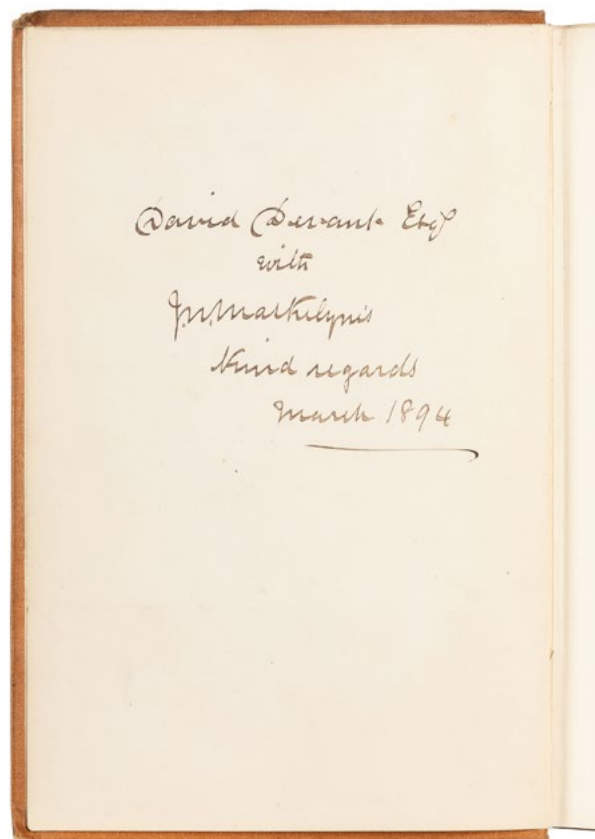 David Devant Esq
with
J.N. Maskelyne's
kind regards
March 1894